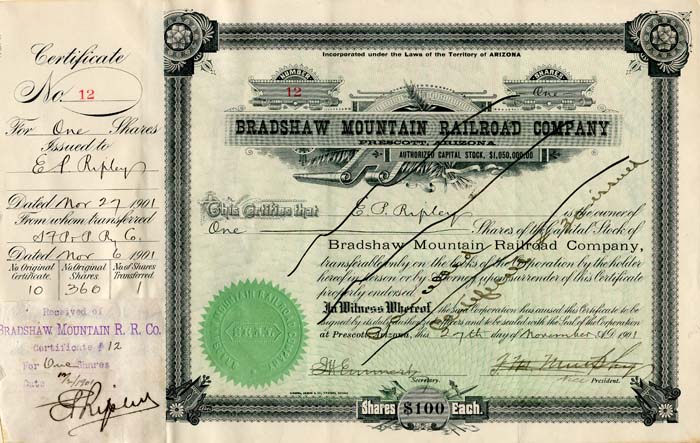 Certificate
No. 12
For One Shares
Issued to
E. P. Ripley
Dated Nov 27 1901
From whom transferred
S F P & P Ry Co.
Dated Nov 6 1901
No Original Certificate. No. Original Shares. No. of Shares Transferred.
10 360 1
Received of
BRADSHAW MOUNTAIN R. R. Co.
Certificate # 12
For One Shares
Date 1901
E P Ripley
Incorporated under the Laws of the Territory of ARIZONA
NUMBER SHARES
12 One
BRADSHAW MOUNTAIN RAILROAD COMPANY
PRESCOTT, ARIZONA.
AUTHORIZED CAPITAL STOCK, $1,050,000.00
This Certifies that E. P. Ripley is the owner of
One Shares of the Capital Stock of
Bradshaw Mountain Railroad Company,
transferable only on the books of the Corporation by the holder
hereof in person or by Attorney upon surrender of this Certificate
properly endorsed.
In Witness Whereof, the said Corporation has caused this Certificate to be
signed by its duly authorized officers and to be sealed with the Seal of the Corporation
at Prescott, Arizona, this 27th day of November A.D. 1901
Cancelled
Certificate # 20 issued
Secretary. Vice President.
Shares $100 Each.